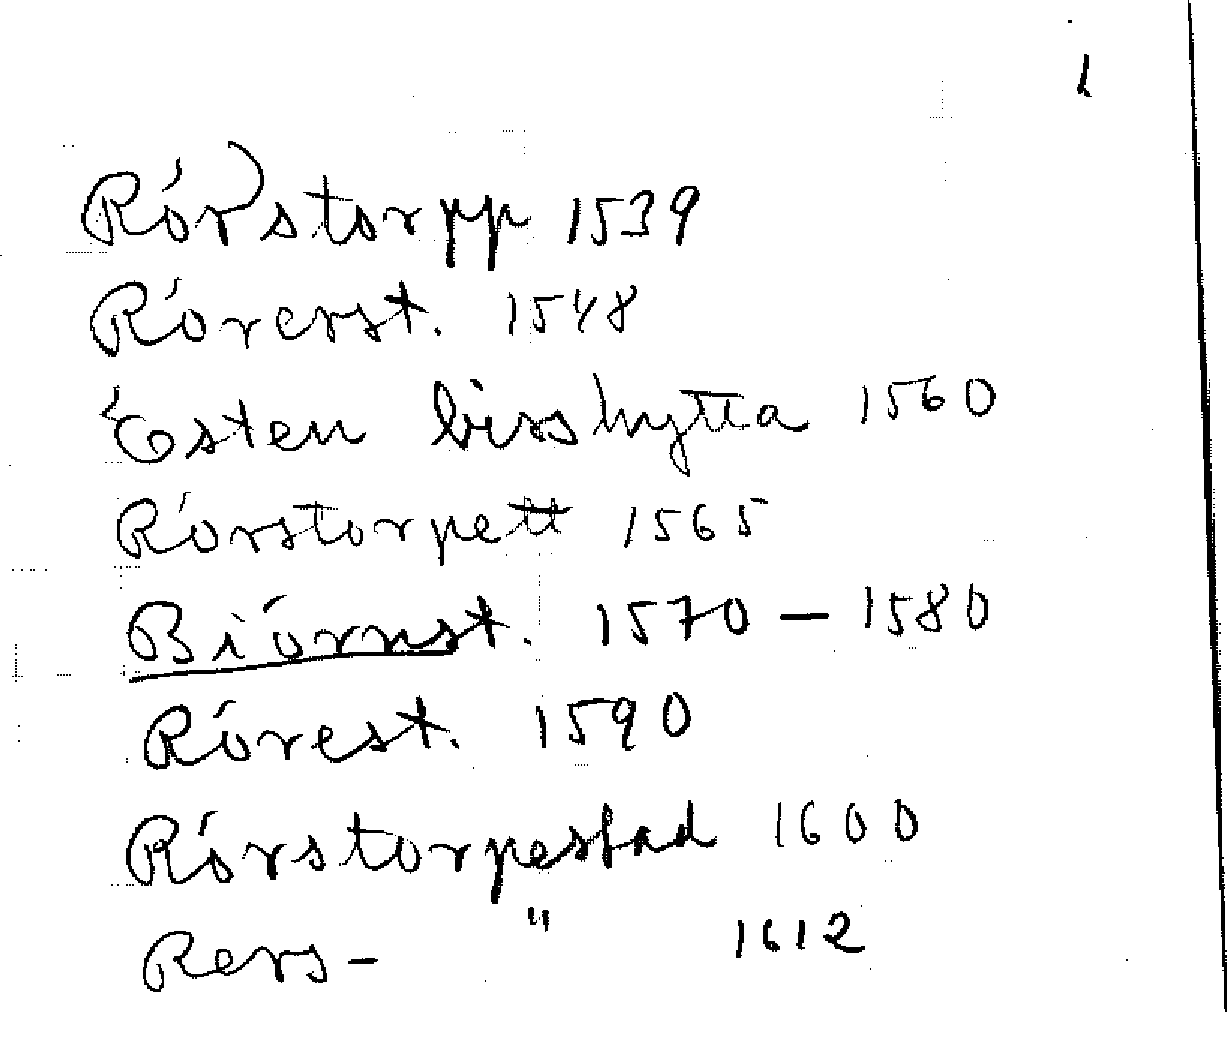 1
Rórstorpp 1539
Rórerst. 1548
Ósten birshytta 1560
Rórstorpett 1565
Biórnst. 1570 – 1580
Rórest. 1590
Rórstorpestad 1600
Rers- " 1612